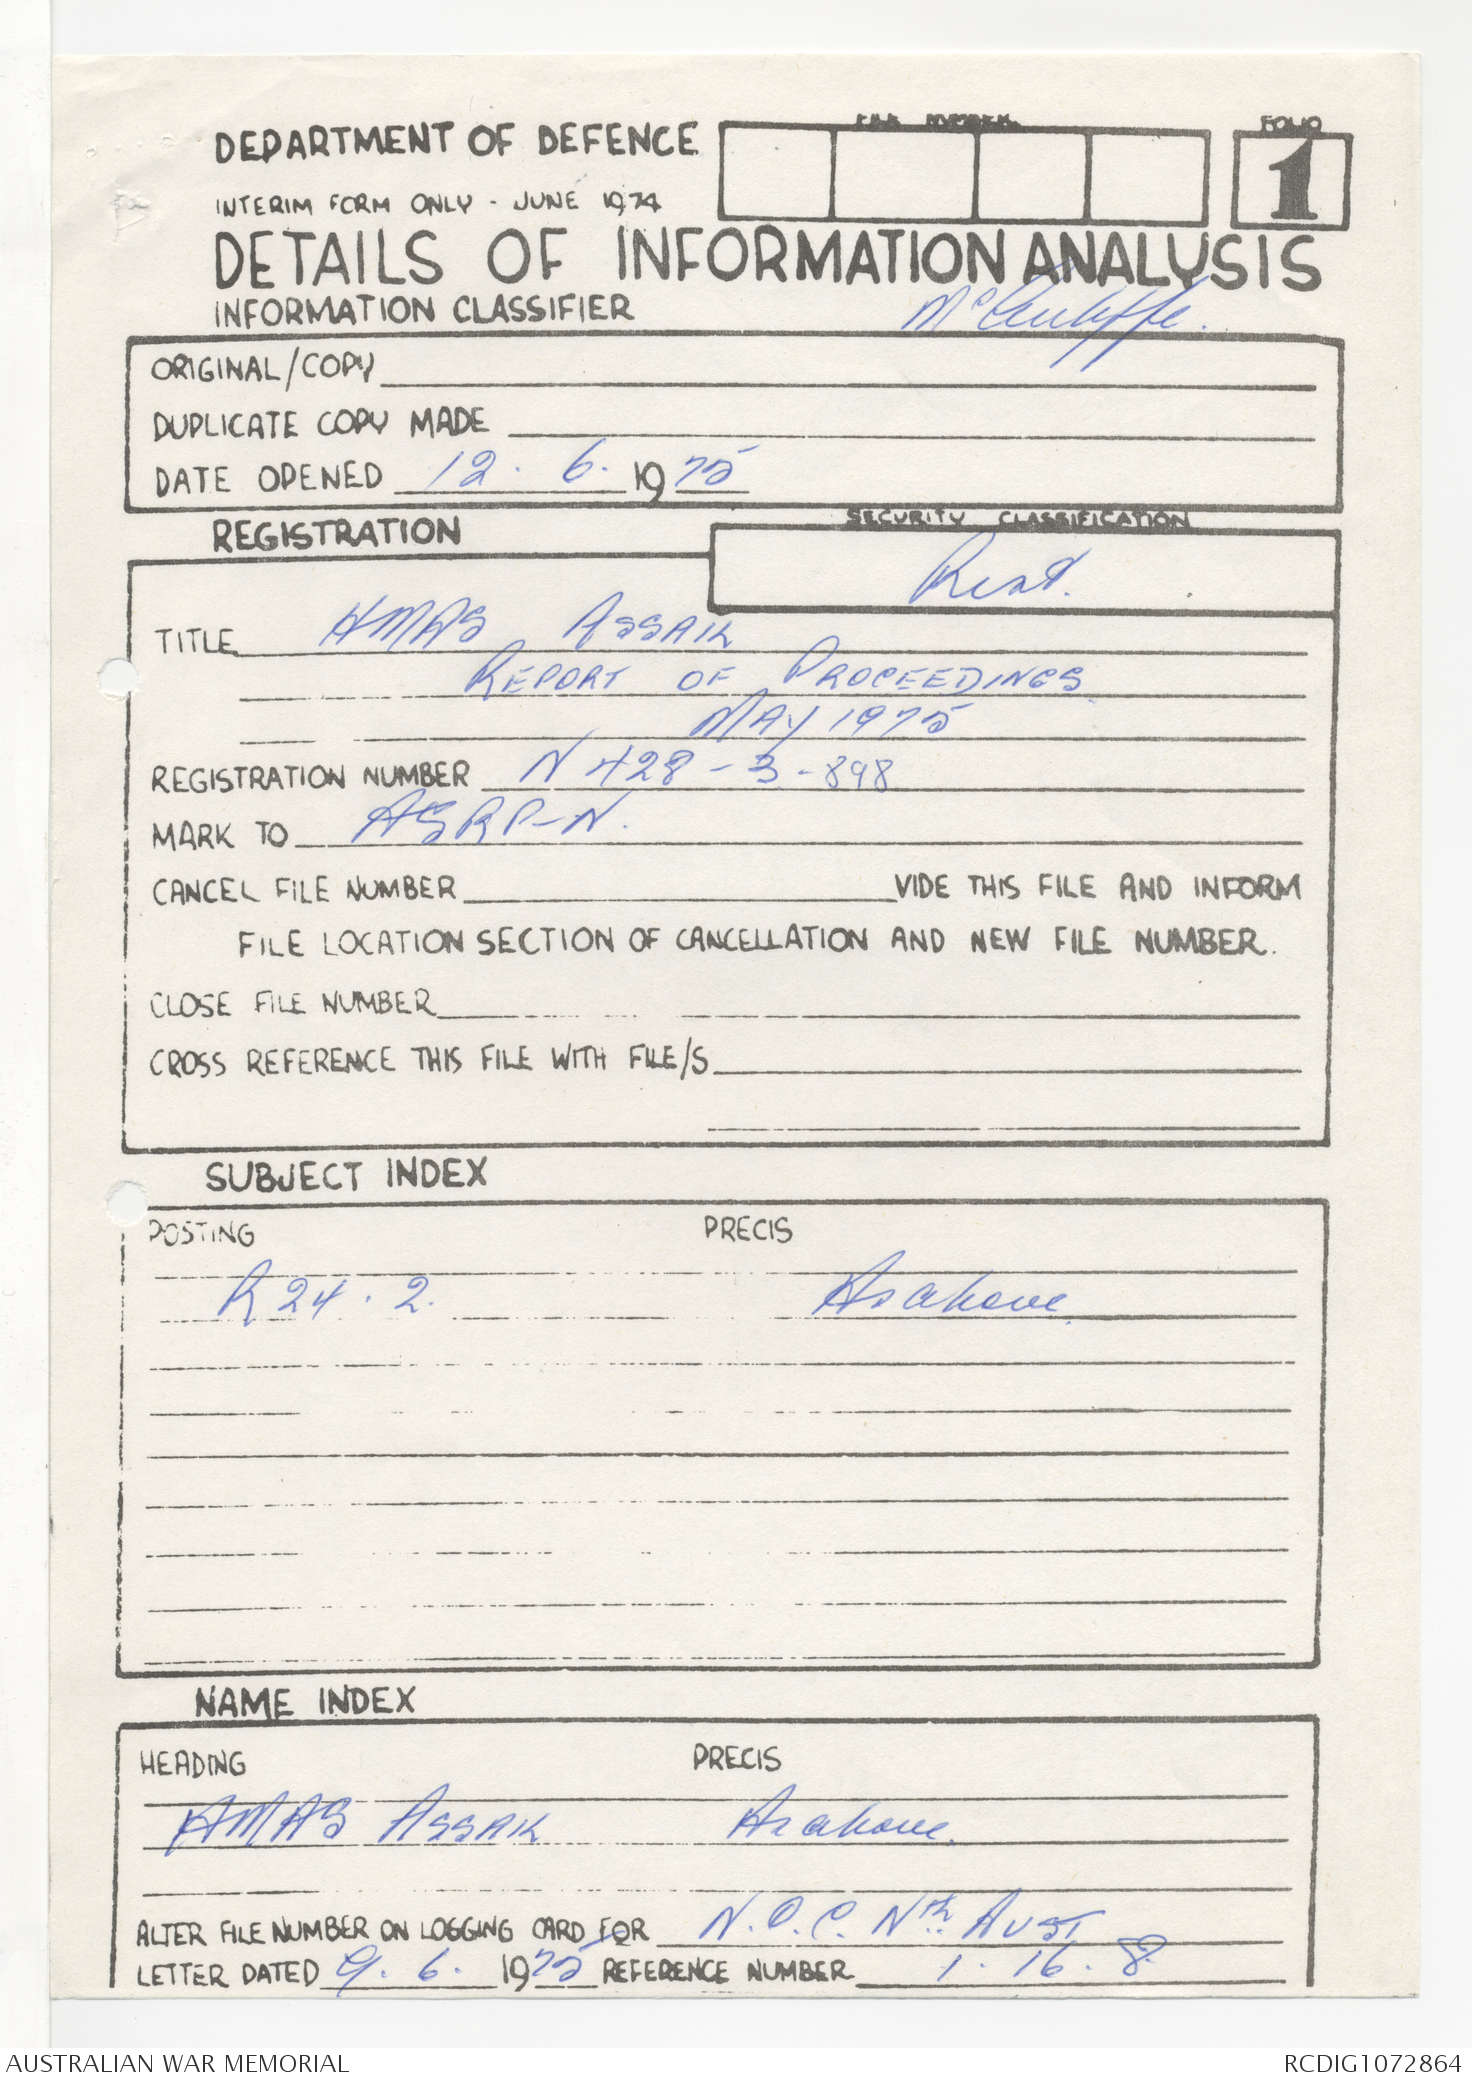 DEPARTMENT OF DEFENCE
FILE NUMBER
FOLIO
1
INTERIM FORM ONLY - JUNE 1974
DETAILS OF INFORMATION ANALYSIS
INFORMATION CLASSIFIER
ORIGINAL/COPY
DUPLICATE COPY MADE
DATE OPENED 12. 6. 1975
REGISTRATION
SECURITY CLASSIFICATION
Rest.
TITLE HMAS ASSAIL
REPORT OF PROCEEDINGS
MAY 1975
REGISTRATION NUMBER N 428-3-898
MARK TO ASRP-N.
CANCEL FILE NUMBER VIDE THIS FILE AND INFORM
FILE LOCATION SECTION OF CANCELLATION AND NEW FILE NUMBER.
CLOSE FILE NUMBER
CROSS REFERENCE THIS FILE WITH FILE/S
SUBJECT INDEX
POSTING PRECIS
R 24.2. As above.
NAME INDEX
HEADING PRECIS
HMAS ASSAIL As above.
ALTER FILE NUMBER ON LOGGING CARD FOR N.O.C. Nth. AUST
LETTER DATED 9. 6. 1975 REFERENCE NUMBER 1.16.8
AUSTRALIAN WAR MEMORIAL
RCDIG1072864